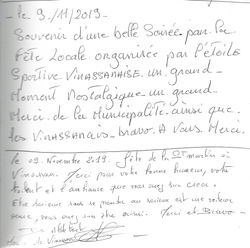 - le 9./11/2019.
Souvenir d'une belle Soirée par la
Fête Locale organisée par l'étoile
Sportive VINASSANAISE. un. grand
Moment Nostalgique - un grand
Merci. de la Municipalité. ainsi que.
les VINASSANAIS - bravo. A Vous. Merci.
le 09. Novembre 2019. Fête de la St martin à
Vinassan. Merci pour votre bonne humeur, votre
talent et l'ambiance que vous avez su créer.
se prendre au sérieux est une
vous avez su être Merci et Bravo -